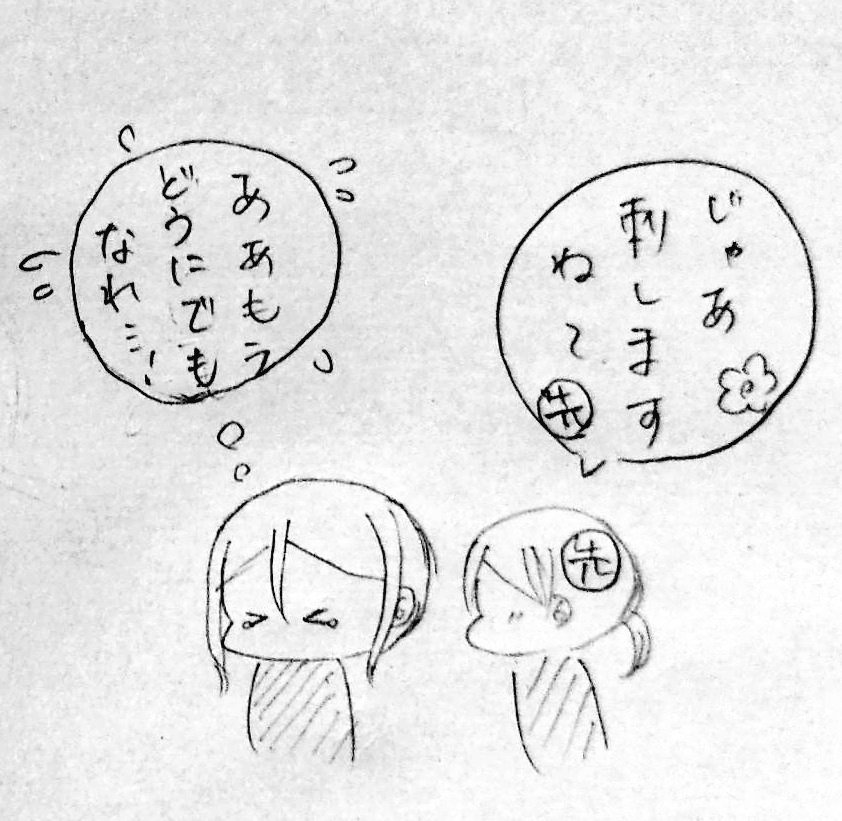 じゃあ
刺します
ねー先
ああもう
どうにでも
なれ…!
先